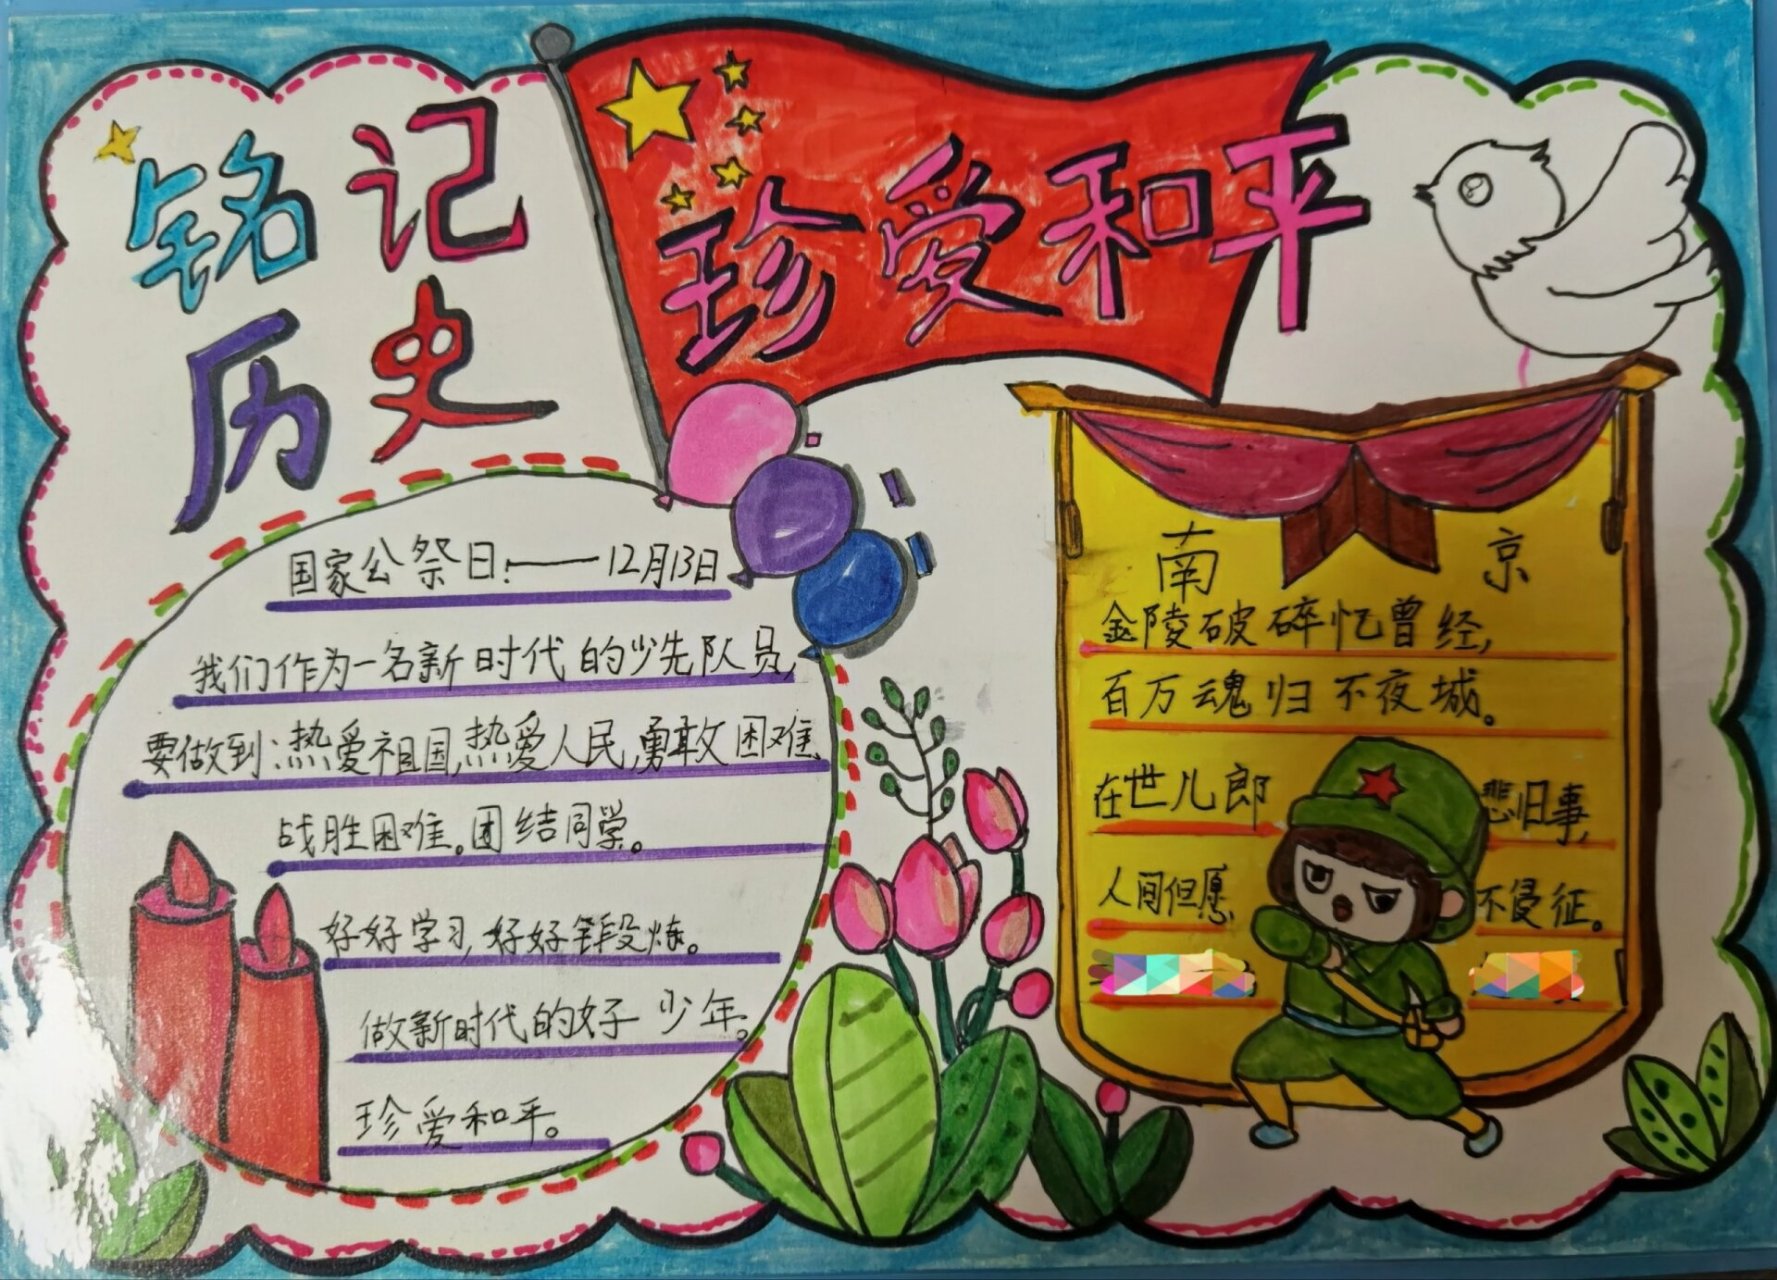 铭记
历史
珍爱和平
国家公祭日!——12月13日
我们作为一名新时代的少先队员,
要做到:热爱祖国,热爱人民,勇敢困难
战胜困难。团结同学。
好好学习,好好锻炼。
做新时代的好少年。
珍爱和平。
南京
金陵破碎忆曾经,
百万魂归不夜城。
在世儿郎悲旧事,
人间但愿不侵征。